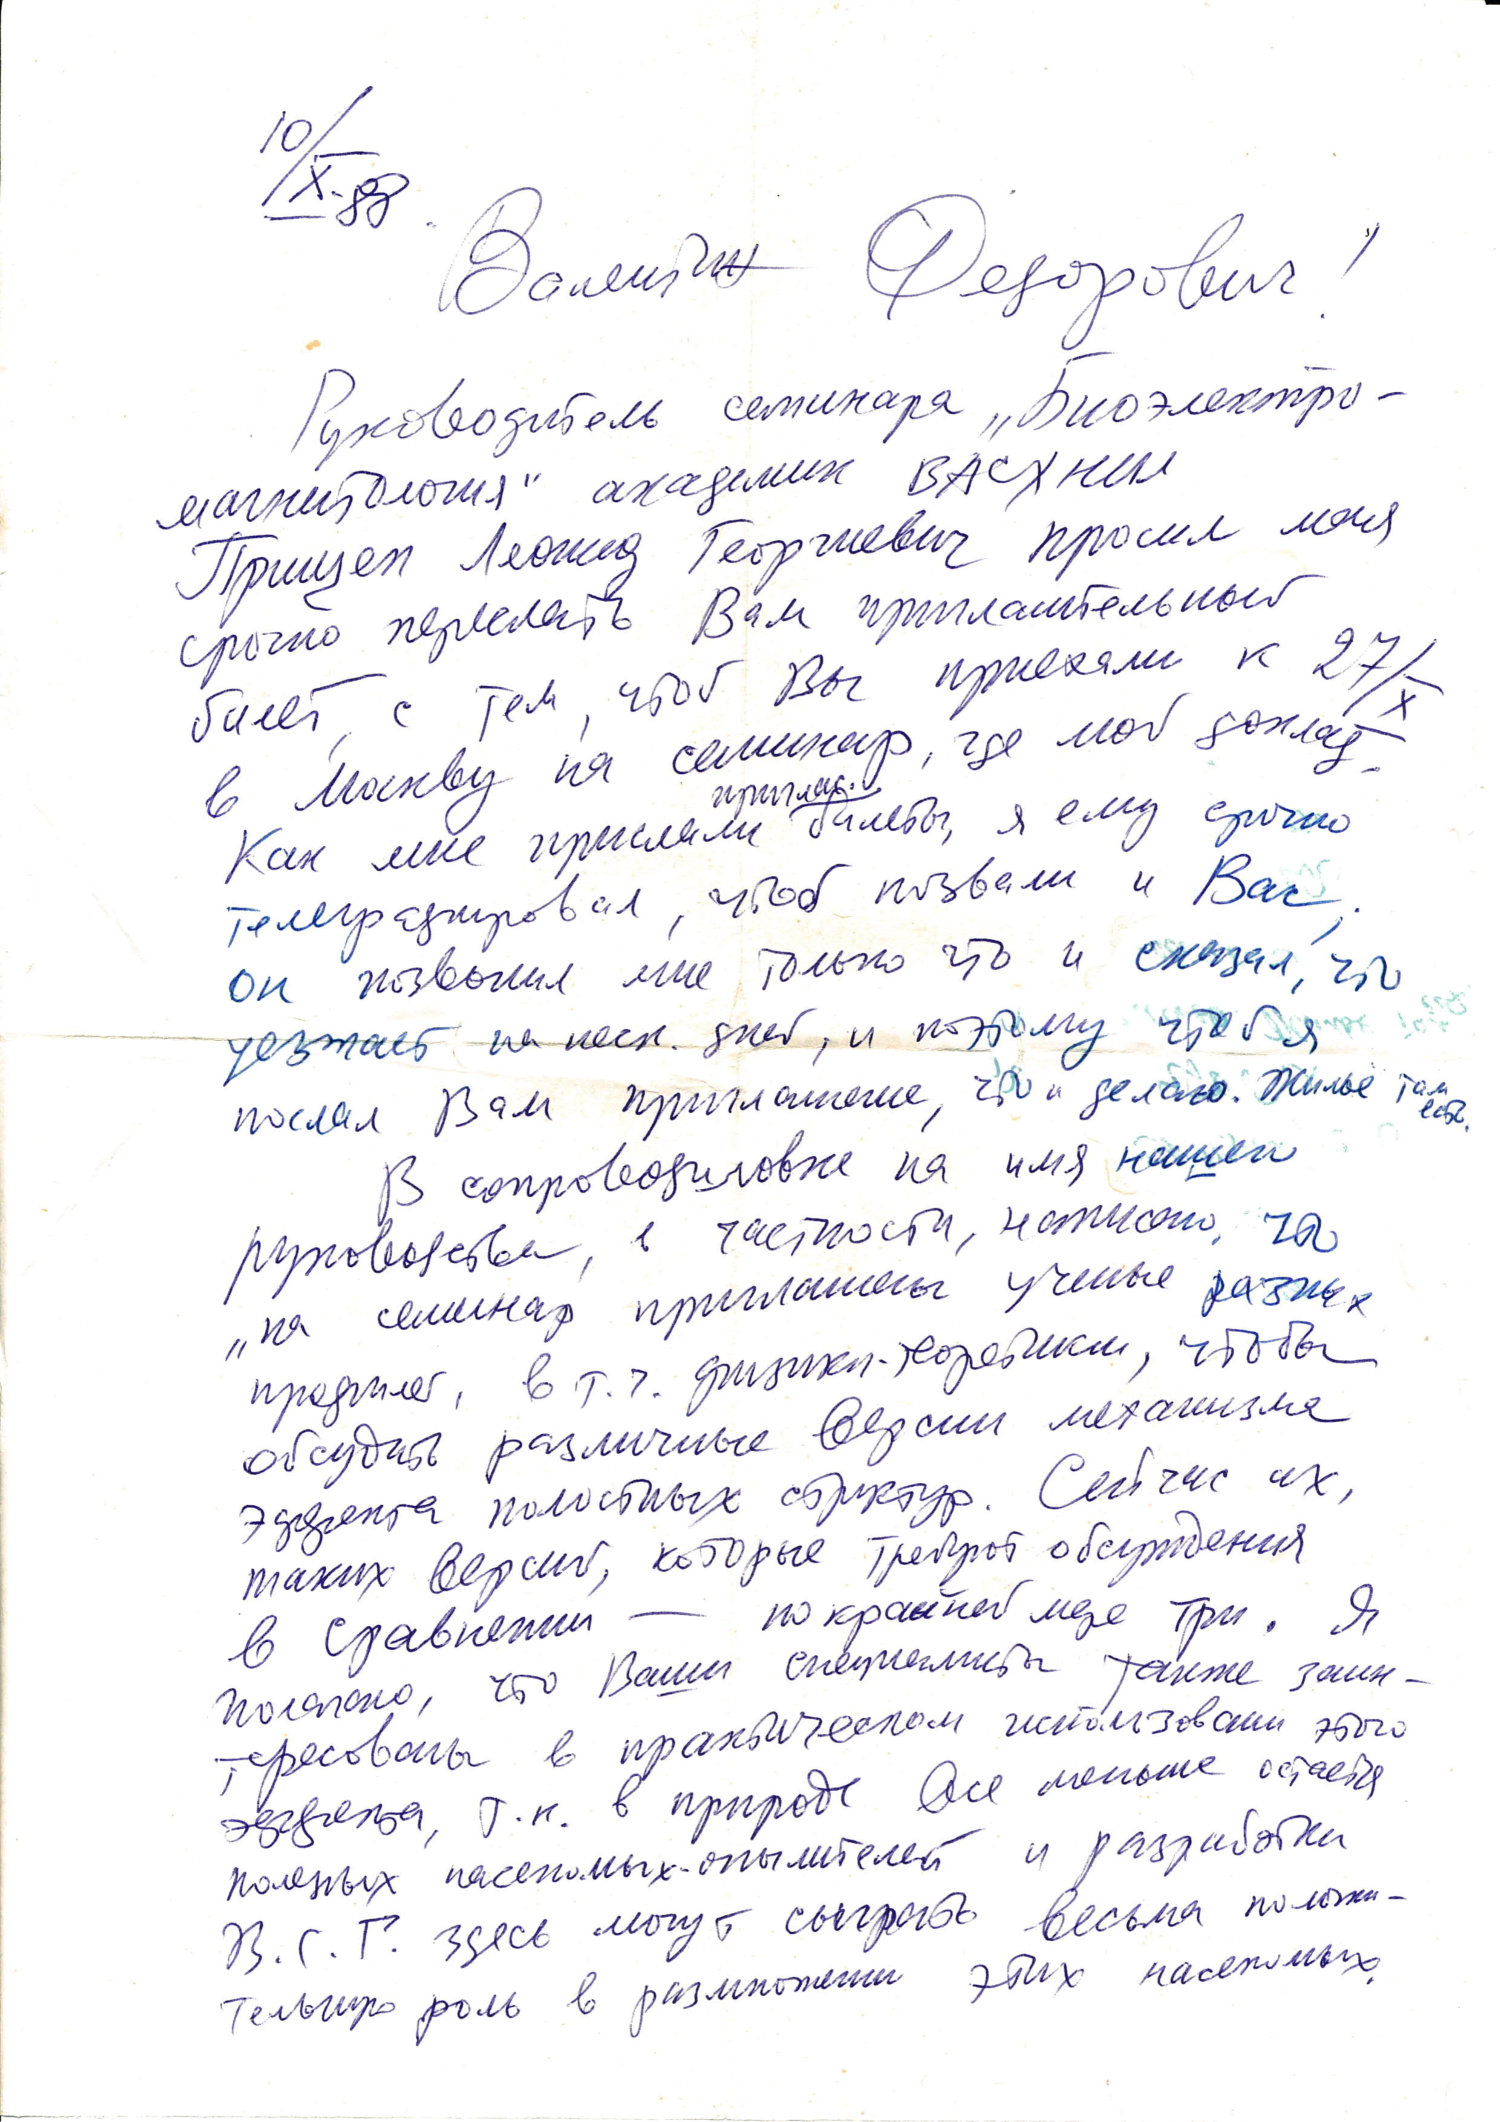 10/X-88
Валентин Федорович!
Руководитель семинара „Биоэлектро-
магнитология" академик ВАСХНИЛ
Прищеп Леонид Георгиевич просил меня
срочно переслать Вам пригласительный
билет, с тем, чтоб Вы приехали к 27/X
в Москву на семинар, где мой доклад.
приглас.
Как мне прислали билеты, я ему срочно
телеграфировал, чтоб позвали и Вас;
он позвонил мне только что и сказал, что
уезжает на неск. дней, и поэтому чтоб я
послал Вам приглашение, что и делаю. Жилье там
есть.
В сопроводиловке на имя нашего
руководства, в частности, написано, что
„на семинар приглашены ученые разных
профилей, в т.ч. физики-теоретики, чтобы
обсудить различные версии механизма
эффекта полостных структур. Сейчас их,
таких версий, которые требуют обсуждения
в сравнении — по крайней мере три. Я
полагаю, что Ваши специалисты также заин-
тересованы в практическом использовании этого
эффекта, т.к. в природе все меньше остается
полезных насекомых-опылителей и разработки
В.С.Г. здесь могут сыграть весьма положи-
тельную роль в размножении этих насекомых.